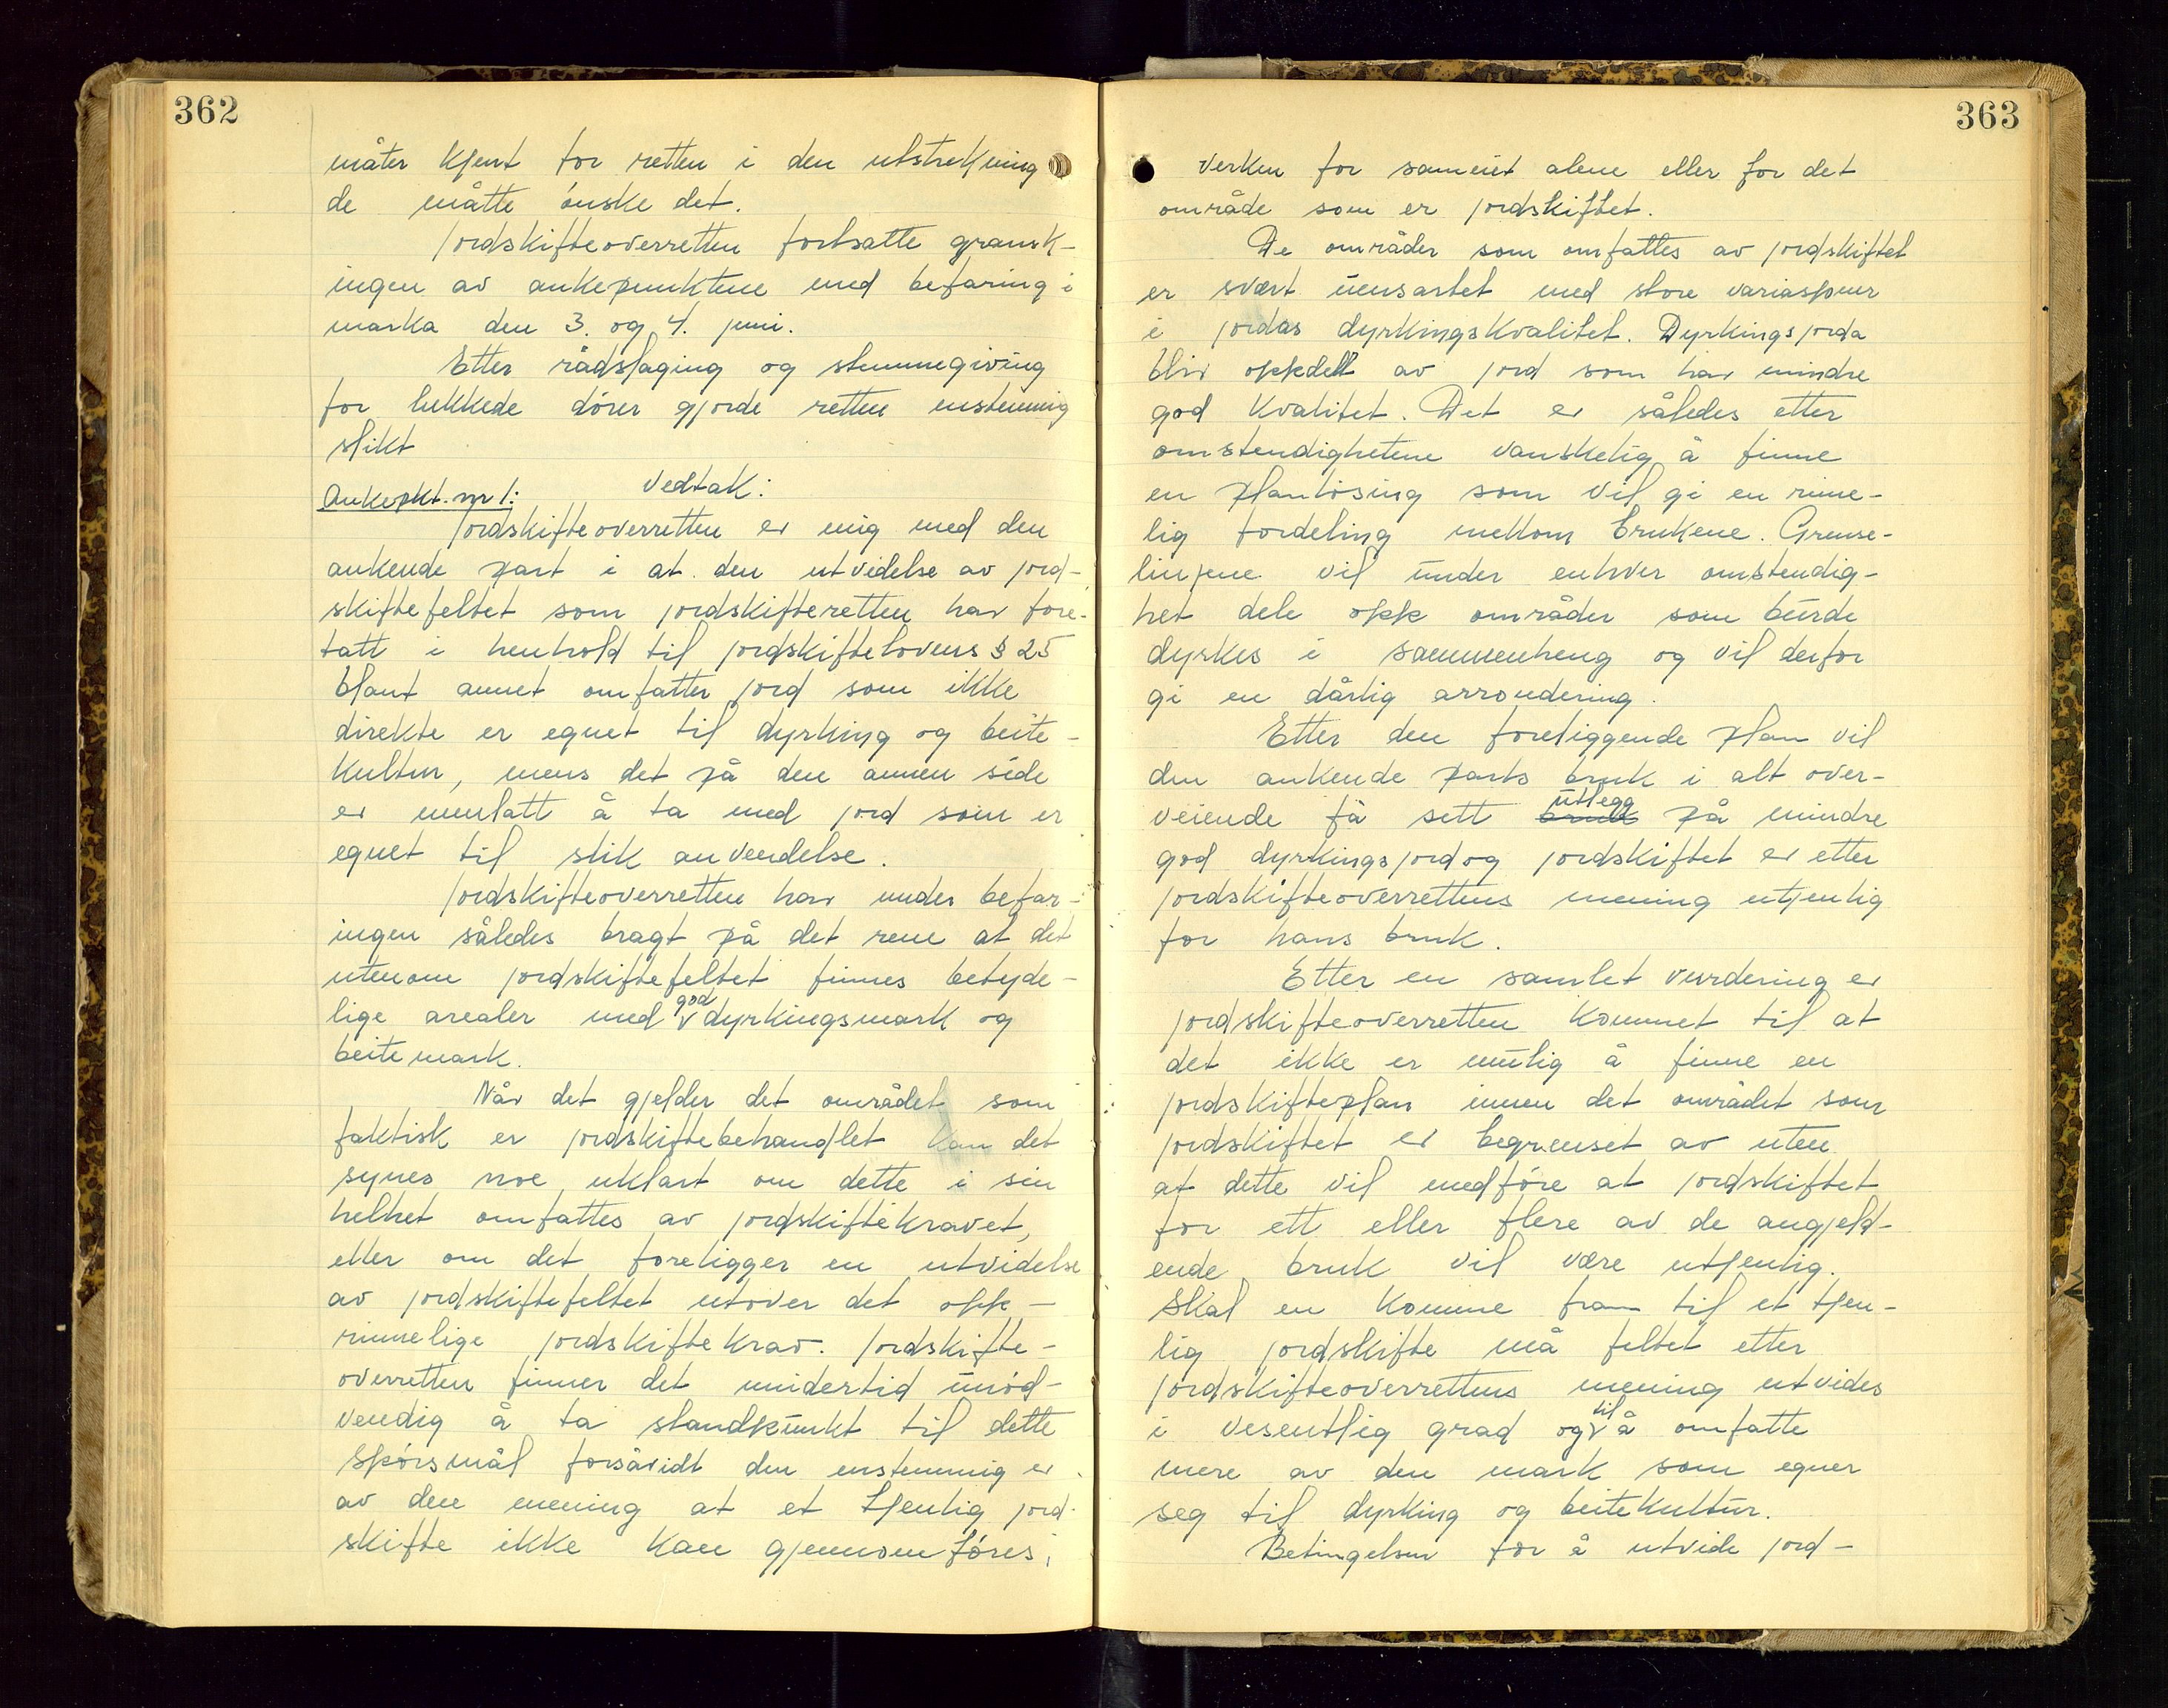 362
måter kjent for retten i den utstrekning
de måtte ønske det.
Jordskifteoverretten fortsatte gransk-
ingen av ankepunktene med befaring i
marka den 3. og 4. juni.
Etter rådslaging og stemmegiving
for lukkede dører gjorde retten enstemmig
slikt
Vedtak:
Ankepkt. nr 1:
Jordskifteoverretten er enig med den
ankende part i at den utvidelse av jord-
skiftefeltet som jordskifteretten har fore-
tatt i henhold til jordskiftelovens § 25
blant annet omfatter jord som ikke
direkte er egnet til dyrking og beite-
kultur, mens det på den annen side
er unnlatt å ta med jord som er
egnet til slik anvendelse.
Jordskifteoverretten har under befar-
ingen således bragt på det rene at det
utenom jordskiftefeltet finnes betyde-
lige arealer med god dyrkingsmark og
beitemark.
Når det gjelder det området som
faktisk er jordskiftebehandlet kan det
synes noe uklart om dette i sin
helhet omfattes av jordskiftekravet,
eller om det foreligger en utvidelse
av jordskiftefeltet utover det opp-
rinnelige jordskiftekrav. Jordskifte-
overretten finner det imidertid unød-
vendig å ta standpunkt til dette
spørsmål forsåvidt den enstemmig er
av den mening at et tjenlig jord-
skifte ikke kan gjennomføres,
363
verken for sameiet alene eller for det
område som er jordskiftet.
De områder som omfattes av jordskiftet
er svært uensartet med store variasjoner
i jordas dyrkingskvalitet. Dyrkingsjorda
blir oppdelt av jord som har mindre
god kvalitet. Det er således etter
omstendighetene vanskelig å finne
en planløsing som vil gi en rime-
lig fordeling mellom brukene. Grense-
linjene vil under enhver omstendig-
het dele opp områder som burde
dyrkes i sammenheng og vil derfor
gi en dårlig arrondering.
Etter den foreliggende plan vil
den ankende parts bruk i alt over-
veiende få sett bruk utlegg på mindre
god dyrkingsjord og jordskiftet er etter
jordskifteoverrettens mening utjenlig
for hans bruk.
Etter en samlet vurdering er
jordskifteoverretten kommet til at
det ikke er mulig å finne en
jordskifteplan innen det området som
jordskiftet er begrenset av uten
at dette vil medføre at jordskiftet
for ett eller flere av de angjeld-
ende bruk vil være utjenlig.
Skal en komme fram til et tjen-
lig jordskifte må feltet etter
jordskifteoverrettens mening utvides
i vesentlig grad og til å omfatte
mere av den mark som egner
seg til dyrking og beitekultur.
Betingelsen for å utvide jord-